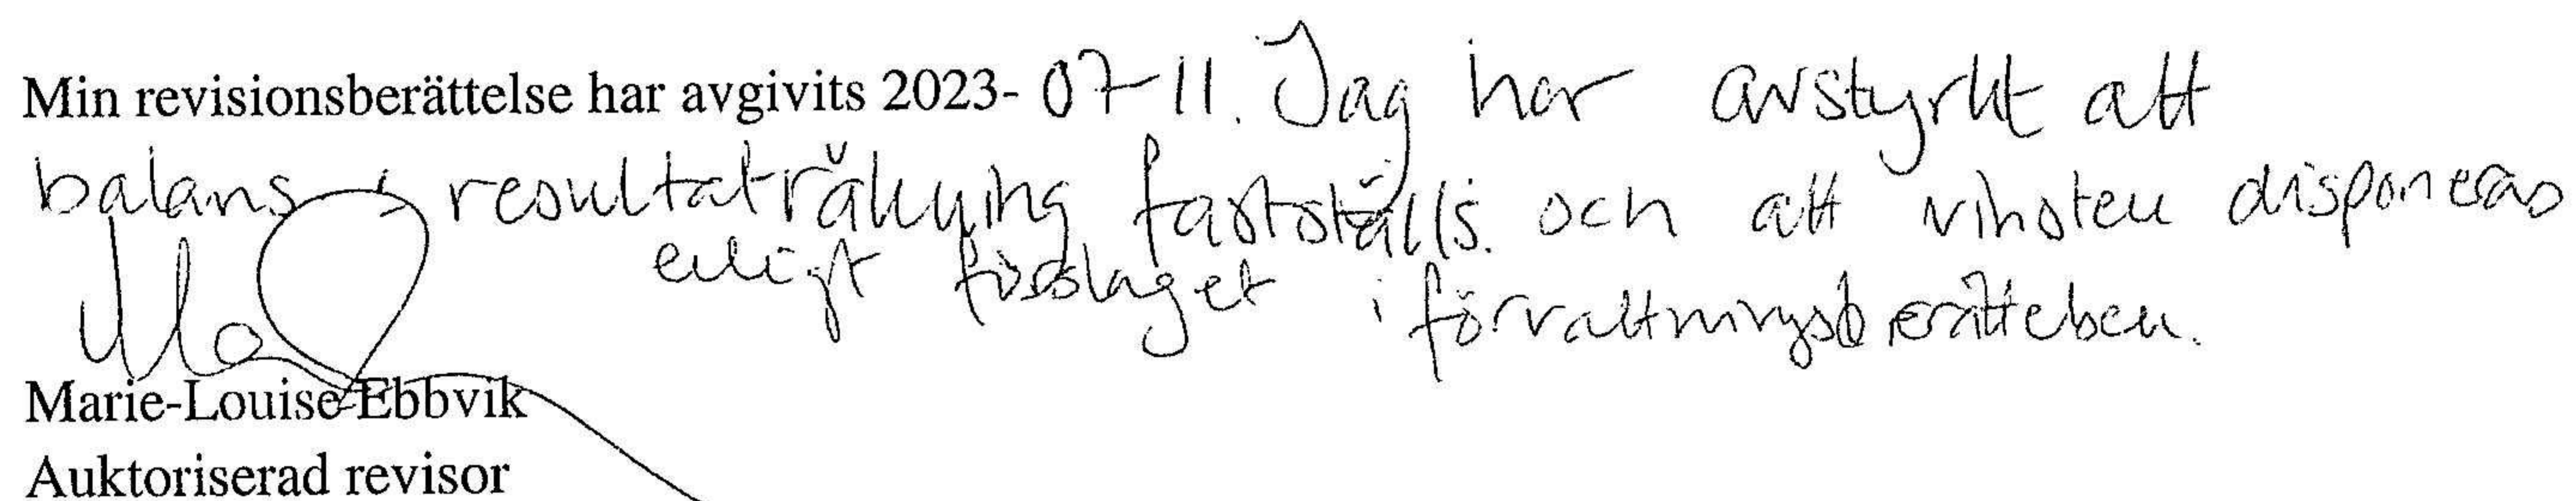 Min revisionsberättelse har avgivits 2023- 07-11. Jag har avstyrkt att
balans resultaträkning fastställs. och att vinsten disponeras
enligt förslaget i förvaltningsberättelsen.
Marie-Louise Ebbvik
Auktoriserad revisor